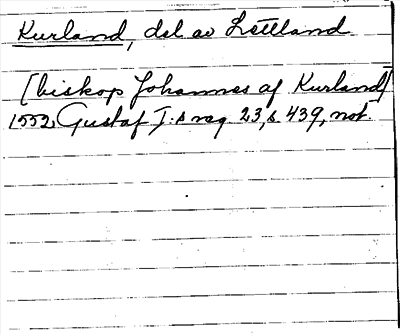 Kurland, del av Lettland
[biskop Johannes af Kurland]
1552, Gustaf I:s reg. 23, s. 439, not.